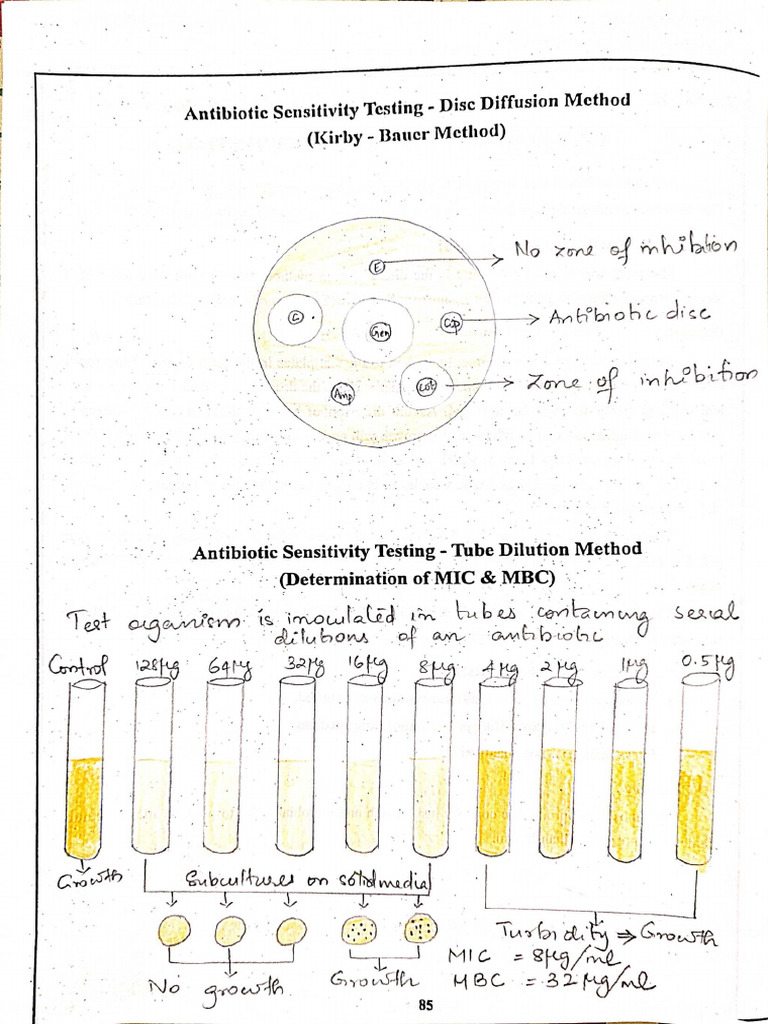 Antibiotic Sensitivity Testing - Disc Diffusion Method
(Kirby - Bauer Method)
E
No zone of inhibition
C
Gen
Cip
Antibiotic disc
Amp
Cot
Zone of inhibition
Antibiotic Sensitivity Testing - Tube Dilution Method
(Determination of MIC & MBC)
Test organism is inoculated in tubes containing serial
dilutions of an antibiotic
Control 128µg 64µg 32µg 16µg 8µg 4µg 2µg 1µg 0.5µg
Growth
Subcultures on solid media
Turbidity ⇒ Growth
No growth
Growth
MIC = 8µg/ml
MBC = 32µg/ml
85